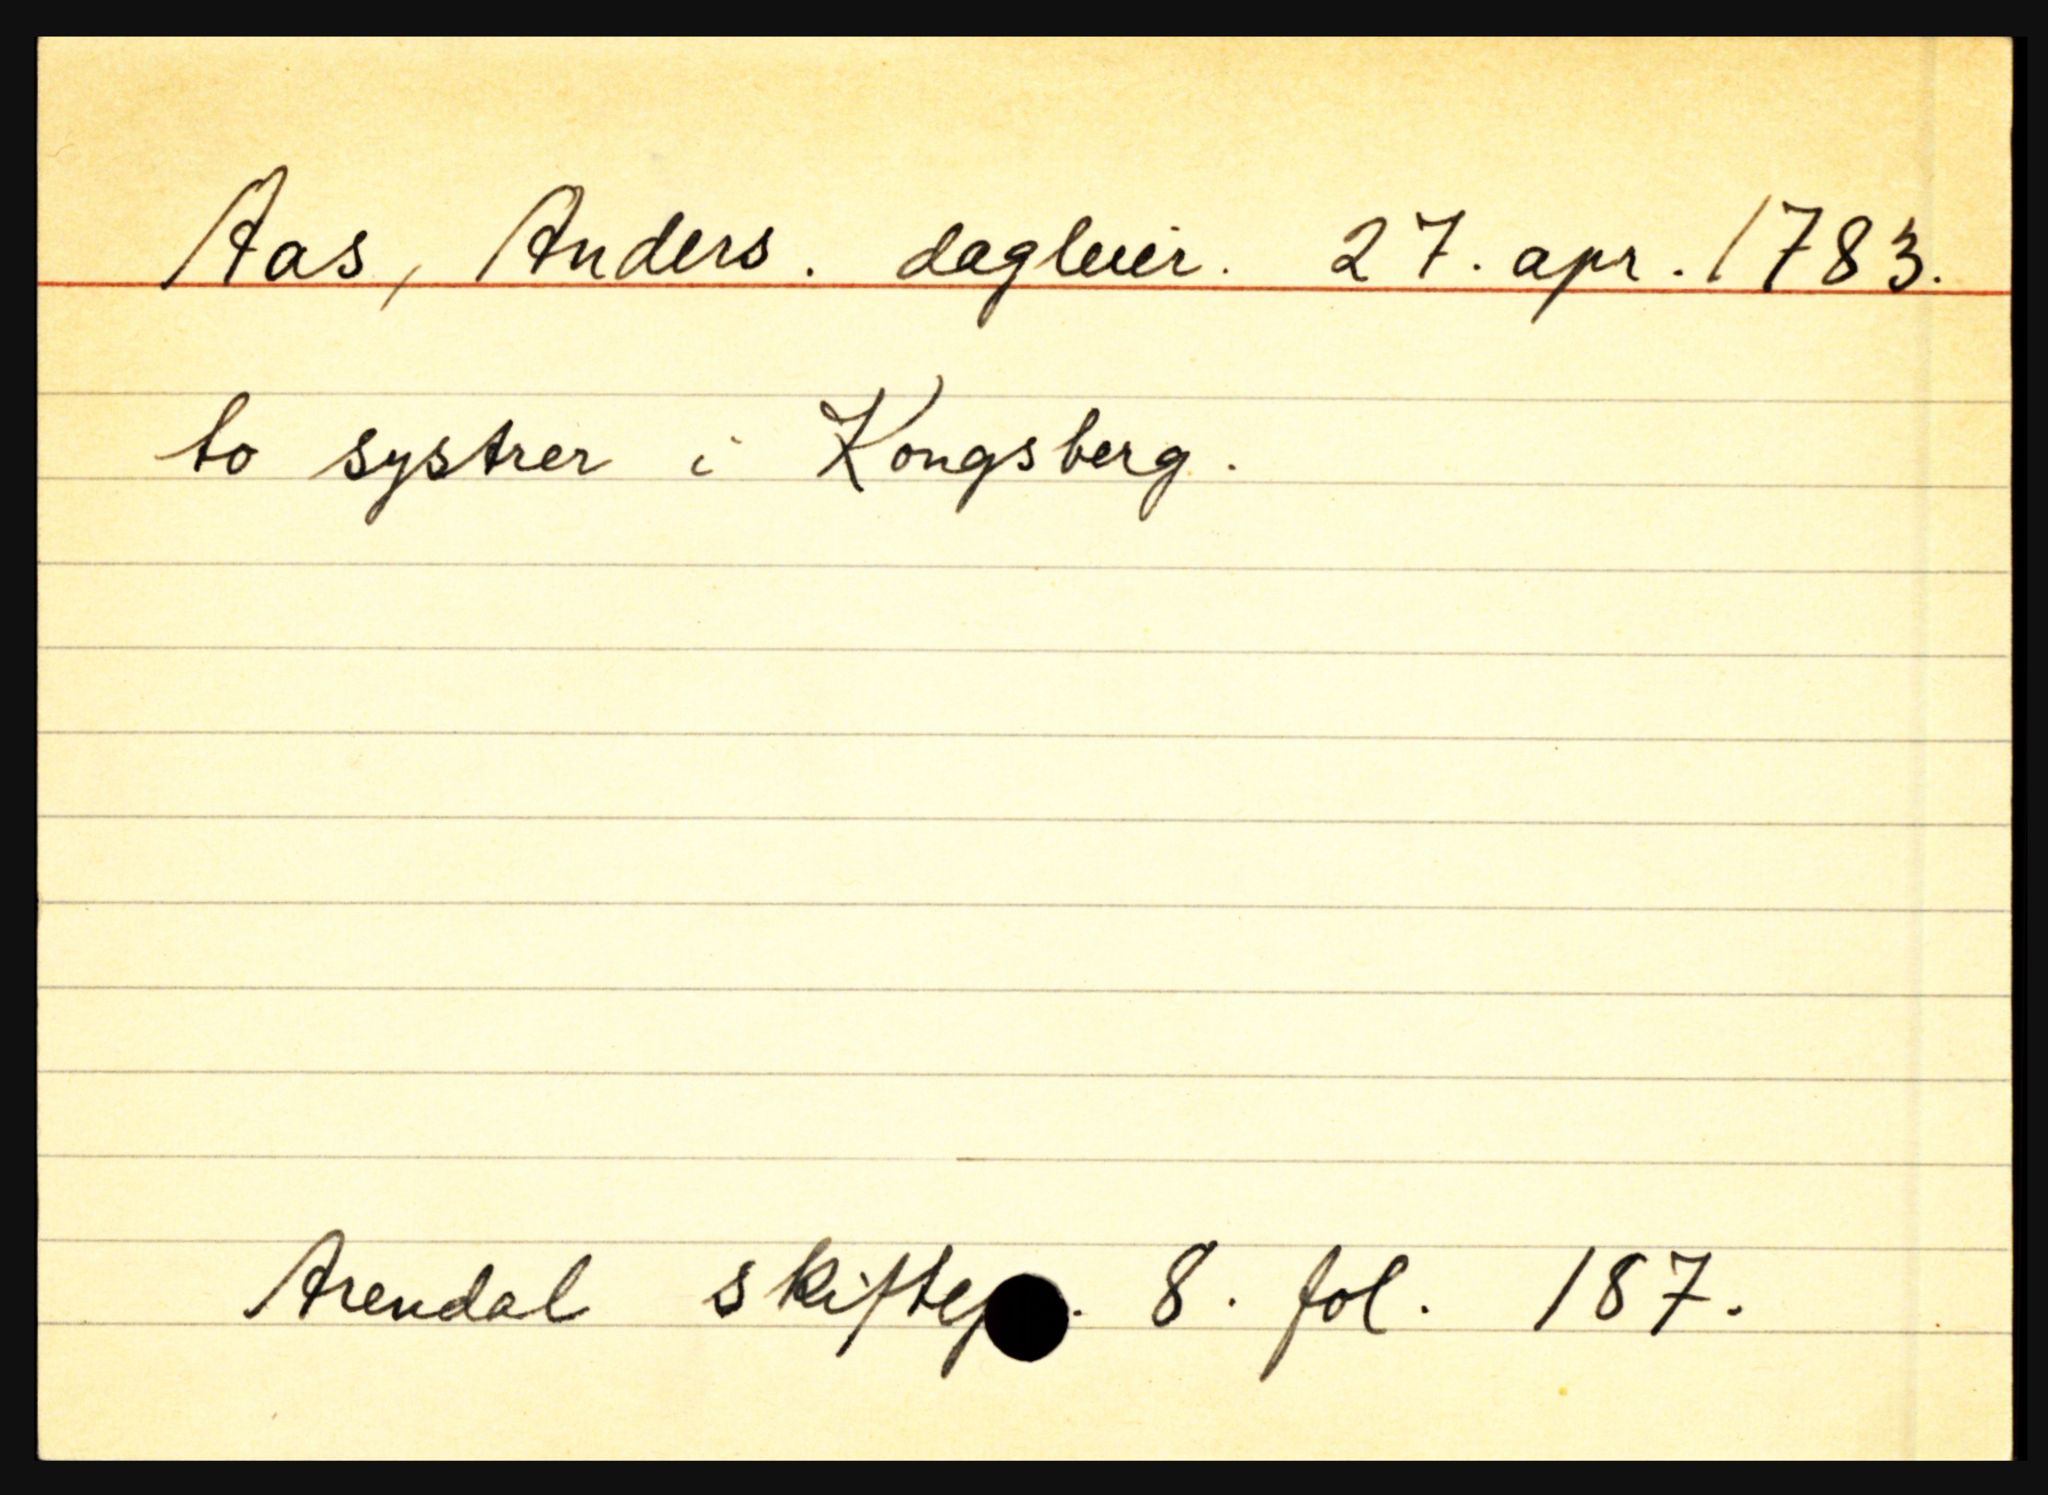 Aas, Anders. dagleier. 27. apr. 1783.
to systrer i Kongsberg.
Arendal skiftep. 8. fol. 187.